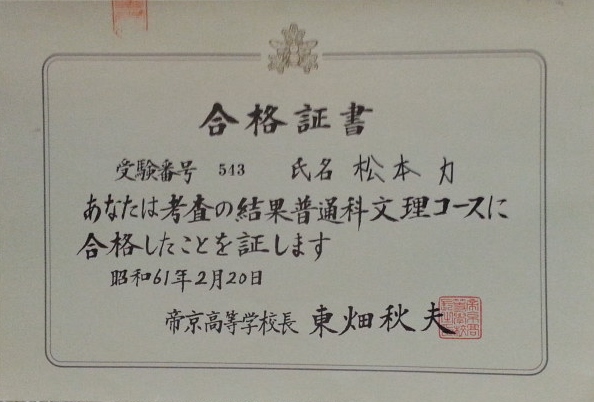 合格証書
受験番号 543 氏名 松本 力
あなたは考査の結果普通科文理コースに
合格したことを証します
昭和61年2月20日
帝京高等学校長 東畑秋夫